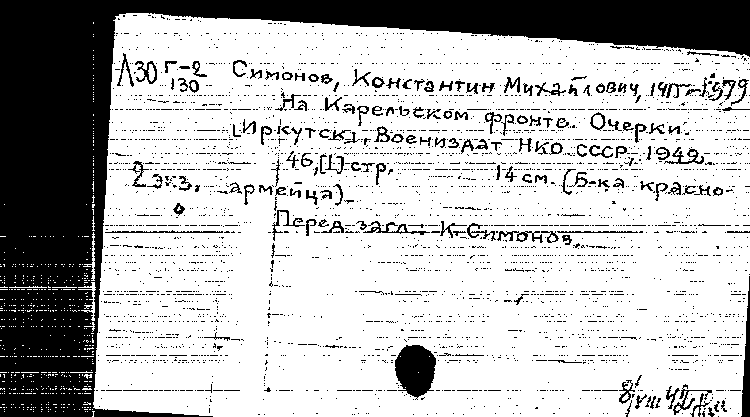 Л30 Г-2
130
Симонов, Константин Михайлович, 1915-1979
На Карельском фронте. Очерки.
[Иркутск], Воениздат НКО СССР, 1942.
46,[1] стр. 14 см. (Б-ка красно-
2 экз. армейца).
Перед загл.: К. Симонов.
8/VIII 42